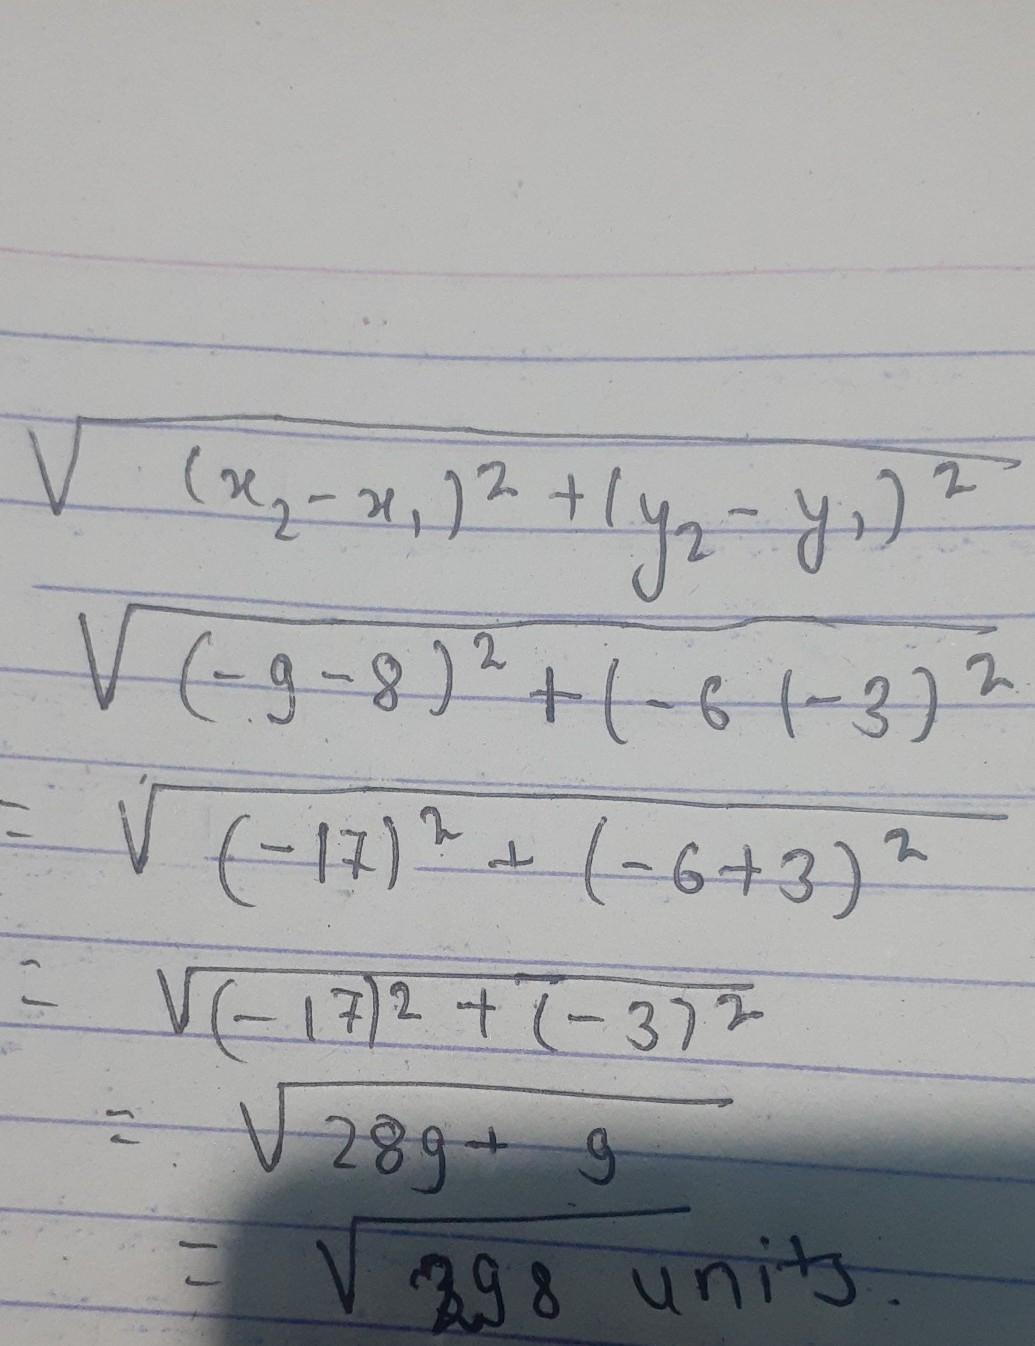 √(x₂-x₁)² + (y₂-y₁)²
√(-9-8)² + (-6(-3)²
= √(-17)² + (-6+3)²
= √(-17)² + (-3)²
= √289 + 9
= √298 units.